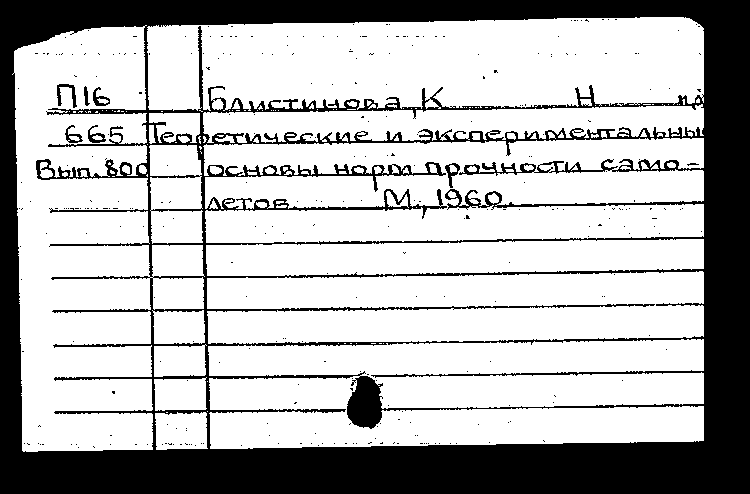 П16 Блистинова, К Н
665 Теоретические и экспериментальные
Вып. 800 основы норм прочности само-
летов М., 1960.